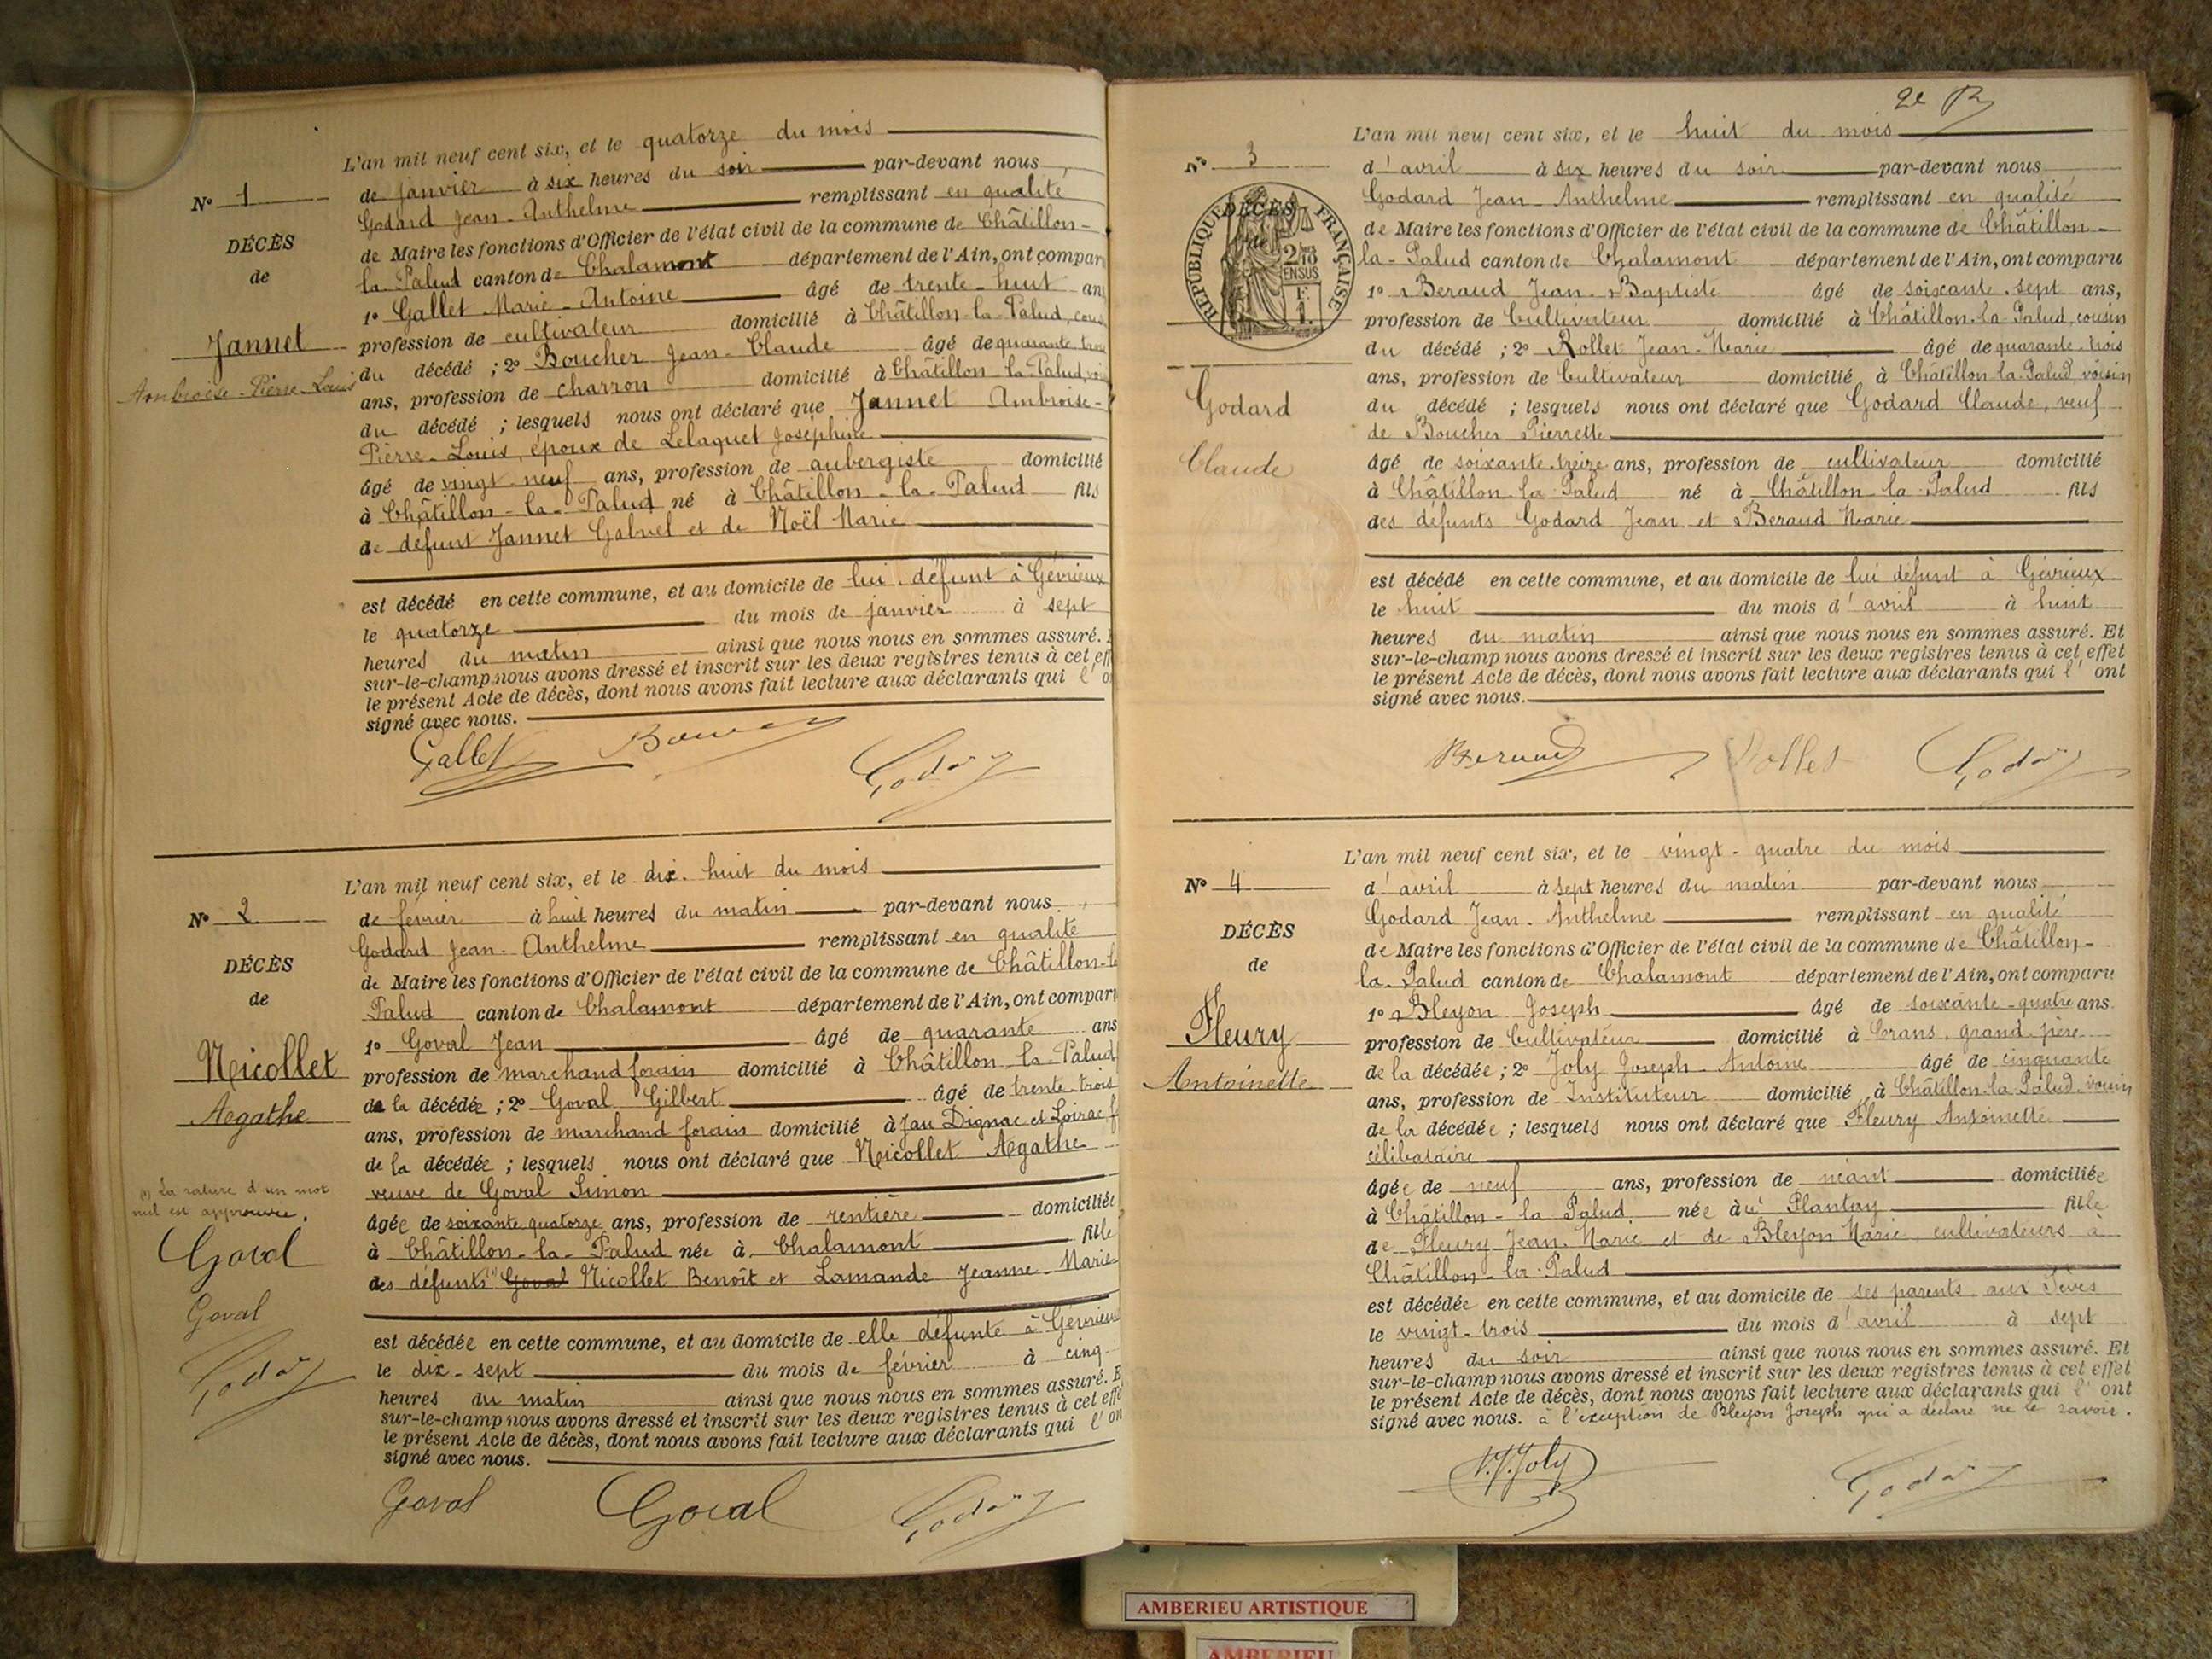 L'an mil neuf cent six, et le quatorze du mois
Nº 1
de janvier à six heures du soir par-devant nous
Godard Jean-Anthelme remplissant en qualité
DÉCÈS
de Maire les fonctions d'Officier de l'état civil de la commune de Châtillon-
de
la Palud canton de Chalamont département de l'Ain, ont compar
1º Gallet Marie-Antoine âgé de trente-huit an
Jannet
profession de cultivateur domicilié à Châtillon-la-Palud, cous
Ambroise-Pierre-Louis
du décédé ; 2º Boucher Jean-Claude âgé de quarante trois
ans, profession de charron domicilié à Châtillon-la-Palud, voi
du décédé ; lesquels nous ont déclaré que Jannet Ambroise-
Pierre-Louis, époux de Lelaquet Joséphine
âgé de vingt-neuf ans, profession de aubergiste domicilié
à Châtillon-la-Palud né à Châtillon-la-Palud fils
de défunt Jannet Gabriel et de Noël Marie
est décédé en cette commune, et au domicile de lui défunt à Gévrieux
le quatorze du mois de janvier à sept
heures du matin ainsi que nous nous en sommes assuré. E
sur-le-champ nous avons dressé et inscrit sur les deux registres tenus à cet eff
le présent Acte de décès, dont nous avons fait lecture aux déclarants qui l' o
signé avec nous.
Gallet Godard
L'an mil neuf cent six, et le dix-huit du mois
Nº 2
de février à huit heures du matin par-devant nous
Godard Jean-Anthelme remplissant en qualité
DÉCÈS
de Maire les fonctions d'Officier de l'état civil de la commune de Châtillon-la
de
Palud canton de Chalamont département de l'Ain, ont comparu
1º Goval Jean âgé de quarante ans
Nicollet
profession de marchand forain domicilié à Châtillon-la-Palud
Agathe
de la décédée ; 2º Goval Gilbert âgé de trente-trois
ans, profession de marchand forain domicilié à Jau Dignac et Loirac f
de la décédée ; lesquels nous ont déclaré que Nicollet Agathe
veuve de Goval Simon
(1) La rature d'un mot
nul est approuvée.
âgée de soixante quatorze ans, profession de rentière domiciliée
à Châtillon-la-Palud née à Chalamont fille
des défunts (1) Goval Nicollet Benoît et Lamande Jeanne-Marie
Goval
Goval
Godard
est décédée en cette commune, et au domicile de elle défunte à Gévrieux
le dix-sept du mois de février à cinq
heures du matin ainsi que nous nous en sommes assuré. E
sur-le-champ nous avons dressé et inscrit sur les deux registres tenus à cet effe
le présent Acte de décès, dont nous avons fait lecture aux déclarants qui l' on
signé avec nous.
Goval Goval Godard
2e
L'an mil neuf cent six, et le huit du mois
Nº 3
d'avril à six heures du soir par-devant nous
Godard Jean-Anthelme remplissant en qualité
DÉCÈS
de
RÉPUBLIQUE FRANÇAISE
2/10 EN SUS
F. 1.
de Maire les fonctions d'Officier de l'état civil de la commune de Châtillon-
la-Palud canton de Chalamont département de l'Ain, ont comparu
1º Beraud Jean-Baptiste âgé de soixante-sept ans,
profession de Cultivateur domicilié à Châtillon-la-Palud, cousin
du décédé ; 2º Rollet Jean-Marie âgé de quarante-trois
ans, profession de Cultivateur domicilié à Châtillon-la-Palud, voisin
Godard
du décédé ; lesquels nous ont déclaré que Godard Claude, veuf
de Boucher Pierrette
Claude
âgé de soixante-treize ans, profession de cultivateur domicilié
à Châtillon-la-Palud né à Châtillon-la-Palud fils
des défunts Godard Jean et Beraud Marie
est décédé en cette commune, et au domicile de lui défunt à Gévrieux
le huit du mois d'avril à huit
heures du matin ainsi que nous nous en sommes assuré. Et
sur-le-champ nous avons dressé et inscrit sur les deux registres tenus à cet effet
le présent Acte de décès, dont nous avons fait lecture aux déclarants qui l' ont
signé avec nous.
Beraud Rollet Godard
L'an mil neuf cent six, et le vingt-quatre du mois
Nº 4
d'avril à sept heures du matin par-devant nous
Godard Jean-Anthelme remplissant en qualité
DÉCÈS
de Maire les fonctions d'Officier de l'état civil de la commune de Châtillon-
de
la-Palud canton de Chalamont département de l'Ain, ont comparu
1º Bleyon Joseph âgé de soixante-quatre ans
Fleury
profession de Cultivateur domicilié à Crans, grand-père
Antoinette
de la décédée ; 2º Joly Joseph-Antoine âgé de cinquante
ans, profession de Instituteur domicilié à Châtillon-la-Palud, voisin
de la décédée ; lesquels nous ont déclaré que Fleury Antoinette
célibataire
âgée de neuf ans, profession de néant domiciliée
à Châtillon-la-Palud née au Plantay fille
de Fleury Jean-Marie et de Bleyon Marie, cultivateurs à
Châtillon-la-Palud
est décédée en cette commune, et au domicile de ses parents aux
le vingt-trois du mois d'avril à sept
heures du soir ainsi que nous nous en sommes assuré. Et
sur-le-champ nous avons dressé et inscrit sur les deux registres tenus à cet effet
le présent Acte de décès, dont nous avons fait lecture aux déclarants qui l' ont
signé avec nous. à l'exception de Bleyon Joseph qui a déclaré ne le savoir.
Joly Godard
AMBERIEU ARTISTIQUE
AMBERIEU